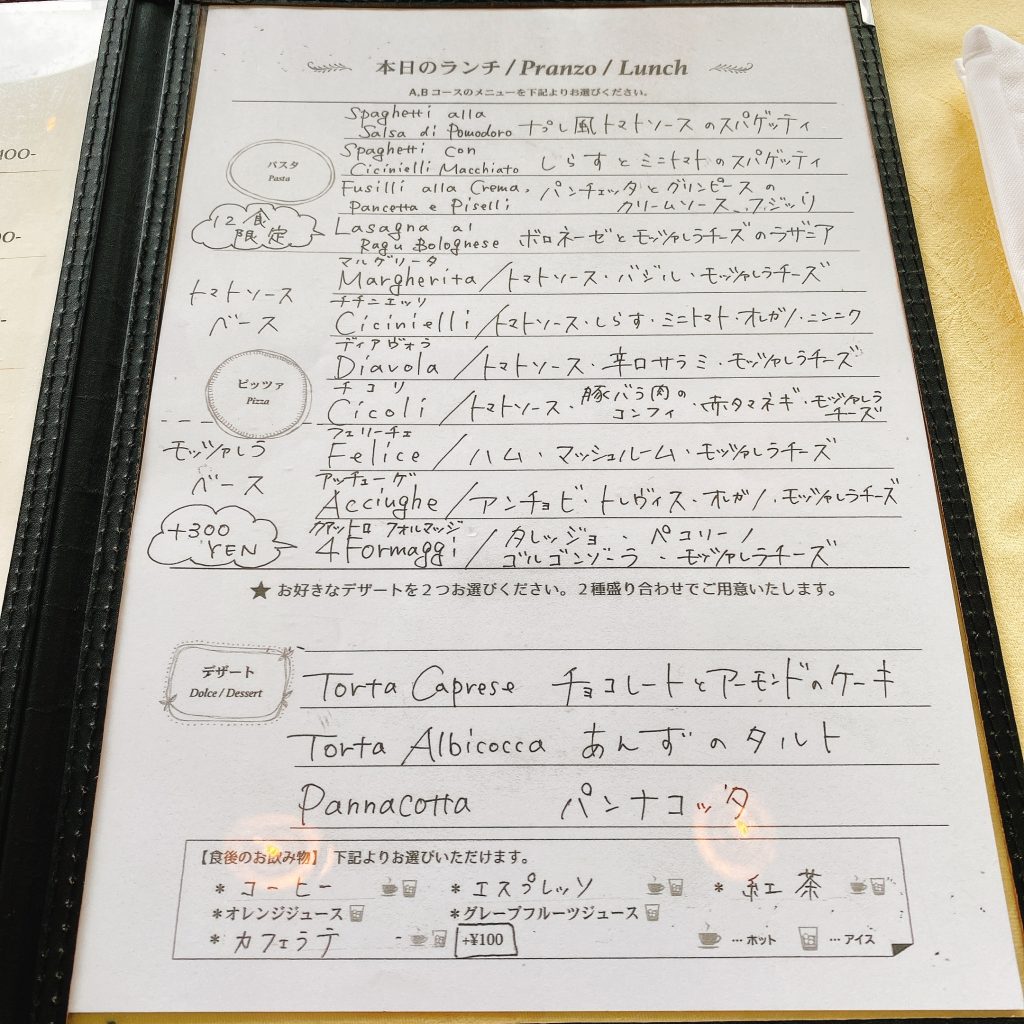 本日のランチ / Pranzo / Lunch
A,B コースのメニューを下記よりお選びください。
パスタ
Pasta
Spaghetti alla
Salsa di Pomodoro ナポリ風トマトソースのスパゲッティ
Spaghetti con
Cicinielli Macchiato しらすとミニトマトのスパゲッティ
Fusilli alla Crema, パンチェッタとグリンピースの
Pancetta e Piselli クリームソース フジッリ
12食
限定
Lasagna al
Ragu Bolognese ボロネーゼとモッツァレラチーズのラザニア
トマトソース
ベース
マルゲリータ
Margherita/トマトソース・バジル・モッツァレラチーズ
チチニエッリ
Cicinielli/トマトソース・しらす・ミニトマト・オレガノ・ニンニク
ディアヴォラ
Diavola/トマトソース・辛口サラミ・モッツァレラチーズ
ピッツァ
Pizza
チコリ
Cicoli/トマトソース・豚バラ肉のコンフィ・赤タマネギ・モッツァレラチーズ
モッツァレラ
ベース
フェリーチェ
Felice/ハム・マッシュルーム・モッツァレラチーズ
アッチューゲ
Acciughe/アンチョビ・トレヴィス・オレガノ・モッツァレラチーズ
+300
YEN
クアットロ フォルマッジ
4Formaggi/タレッジョ・ペコリーノ
ゴルゴンゾーラ・モッツァレラチーズ
★ お好きなデザートを2つお選びください。2種盛り合わせでご用意いたします。
デザート
Dolce / Dessert
Torta Caprese チョコレートとアーモンドのケーキ
Torta Albicocca あんずのタルト
Pannacotta パンナコッタ
【食後のお飲み物】 下記よりお選びいただけます。
* コーヒー * エスプレッソ * 紅茶
* オレンジジュース * グレープフルーツジュース
* カフェラテ +¥100 … ホット … アイス
100-
00-